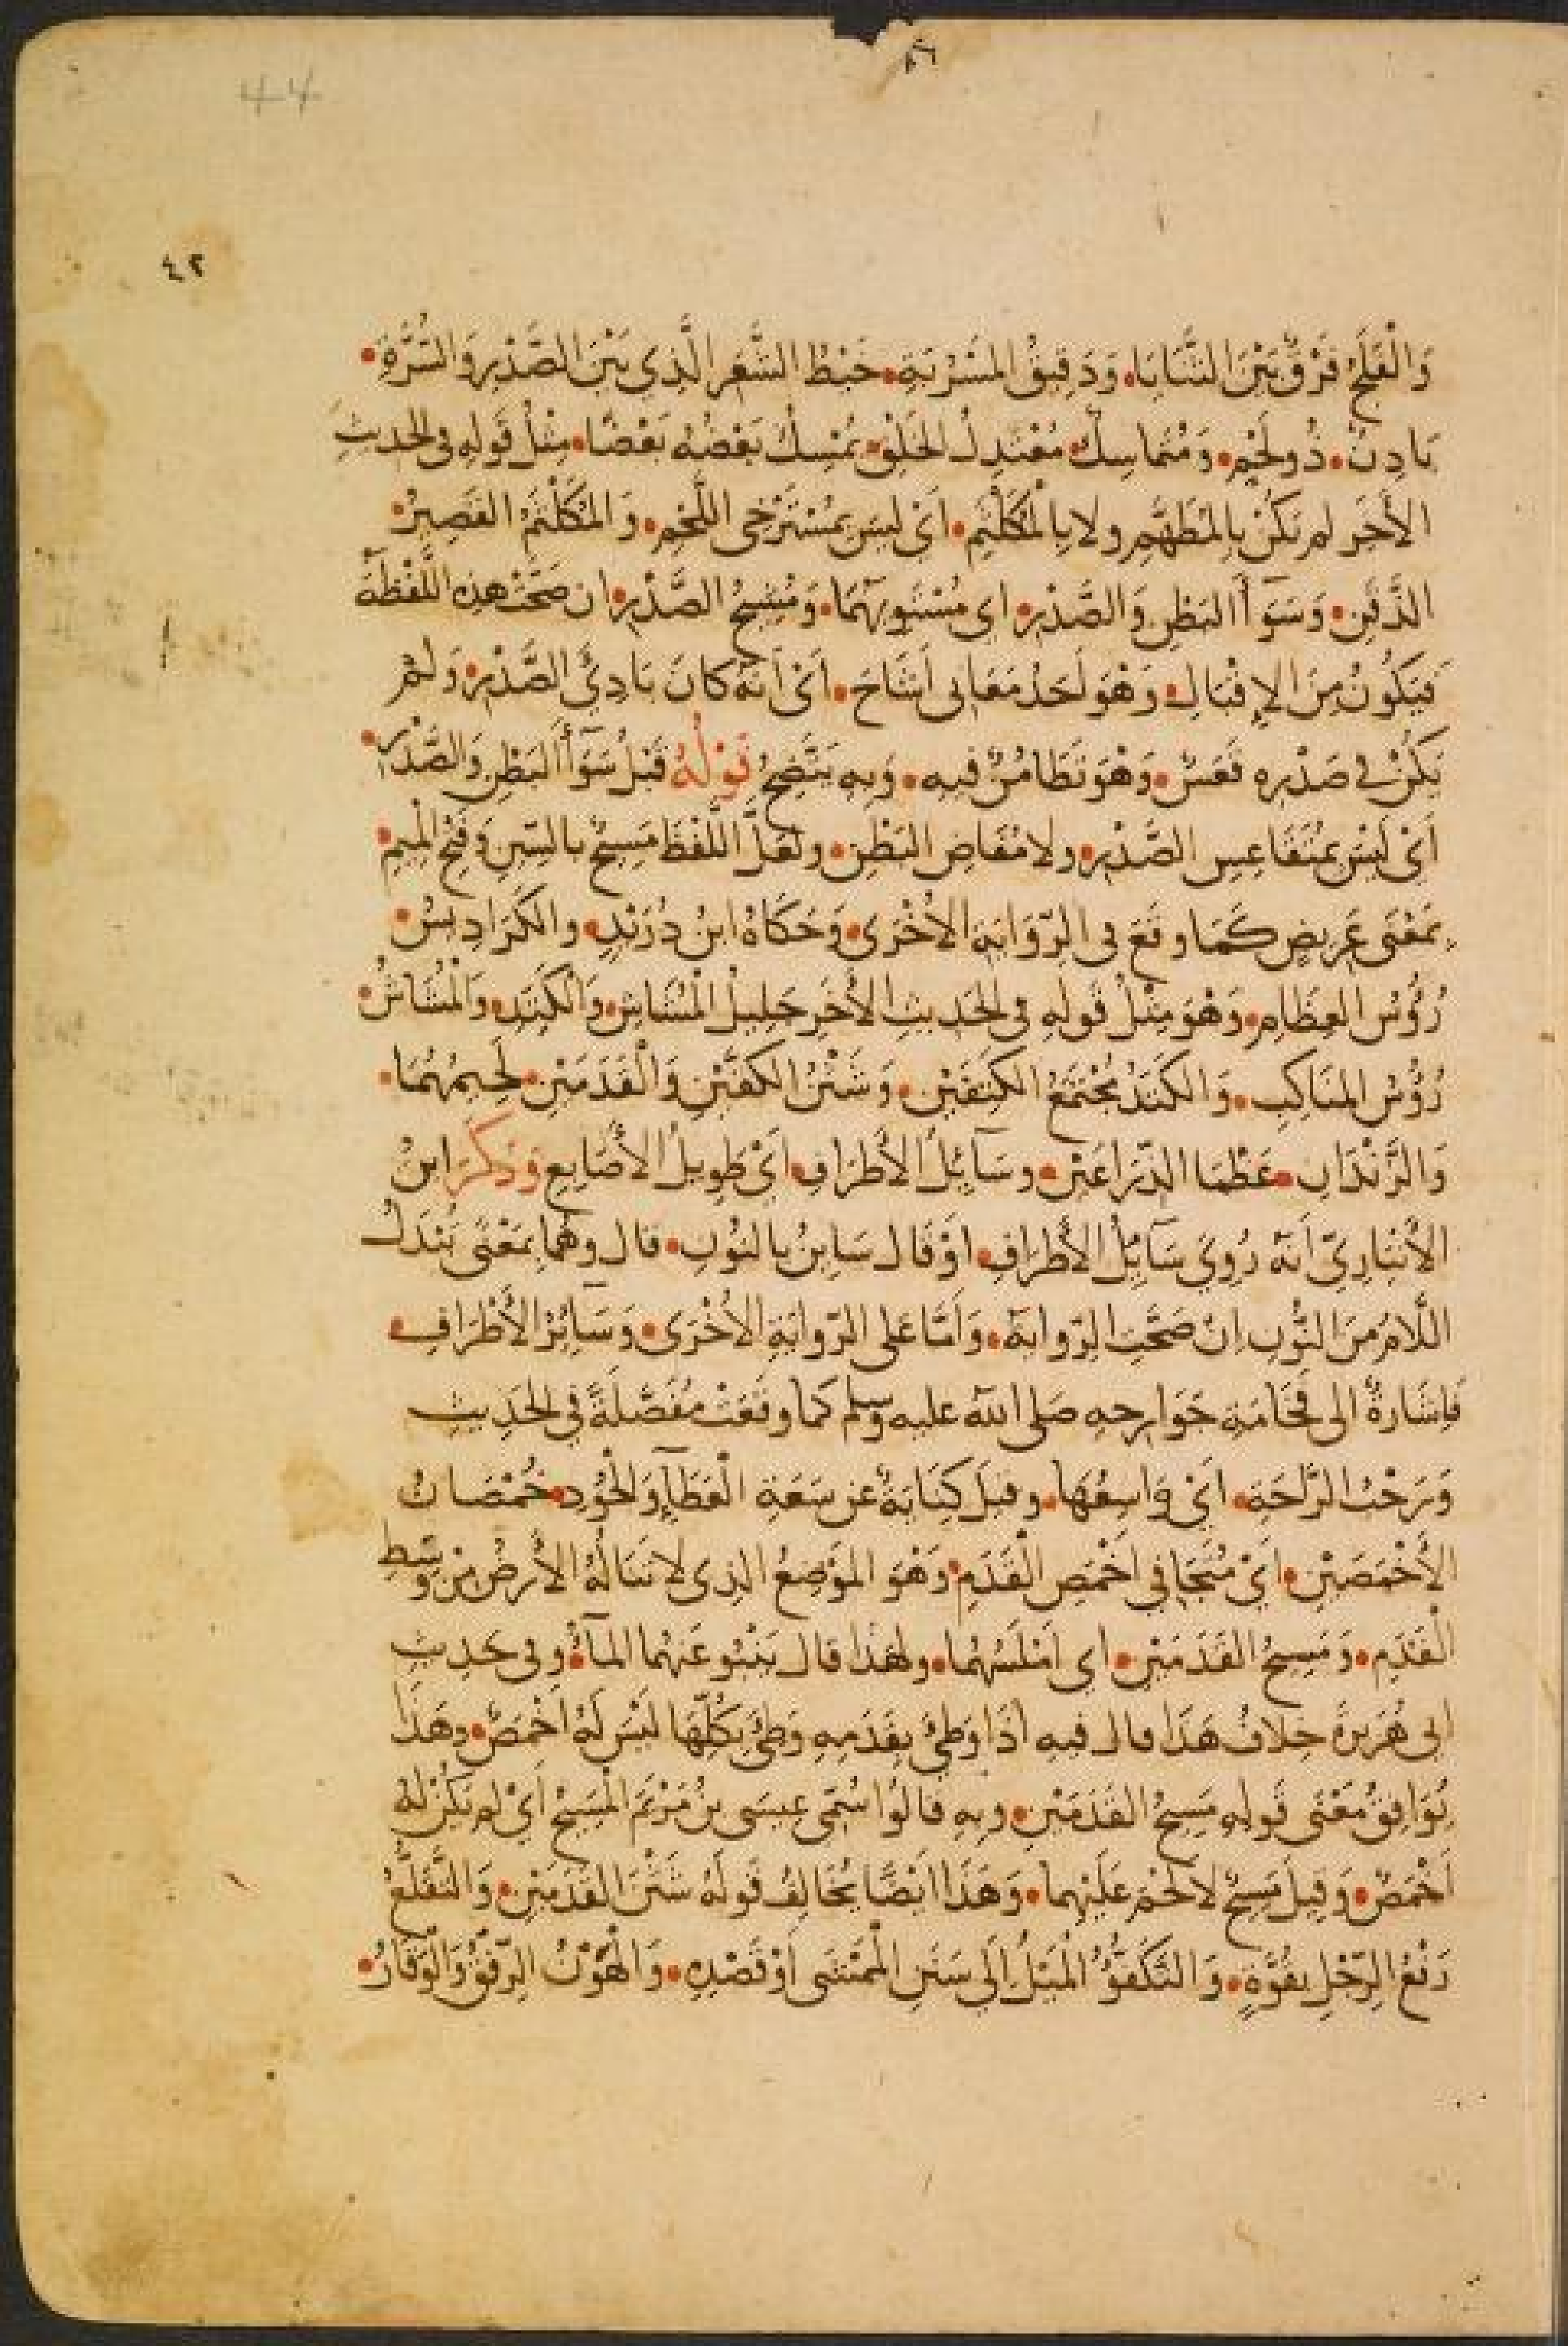 44
٤٢
وَالْفَلَجُ فَرْقٌ بَيْنَ الثَّنَايَا، وَدَقِيقُ المَسْرُبَةِ، خَيْطُ الشَّعَرِ الَّذِي بَيْنَ الصَّدْرِ وَالسُّرَّةِ
بَادِنٌ، ذُو لَحْمٍ، وَمُتَمَاسِكٌ، مُعْتَدِلُ الخَلْقِ، يُمْسِكُ بَعْضُهُ بَعْضًا، مِثْلُ قَولِهِ في الحديثِ
الأخَرِ لم يَكُنْ بِالمُطَهَّمِ ولا بِالْمُكَلْثَمِ، اَيْ لَيسَ بِمُسْتَرْخِي اللَّحْمِ، وَالمُكَلْثَمُ القَصِيرُ
الذَّقَنِ، وَسَوَآءُ البَطْنِ وَالصَّدْرِ، اي مُسْتَوِيهُمَا، وَمُشِيحُ الصَّدْرِ، ان صَحَّتْ هذِهِ اللَّفْظَةُ
فَيَكُونُ مِنَ الإِقْبَالِ، وَهْوَ اَحَدُ مَعَانِي اَشَاحَ، اَيْ اَنَّهُ كانَ بَادِيَ الصَّدْرِ، وَلَمْ
يَكُنْ في صَدْرِهِ قَعَسٌ، وَهْوَ تَطَامُنٌ فيهِ، وَبِهِ يَتَّضِحُ قَوْلُهُ قَبْلُ سَوَآءُ البَطْنِ وَالصَّدْرِ
اَيْ لَيْسَ بِمُتَقَاعِسِ الصَّدْرِ، ولا مُفَاضِ البَطْنِ، ولَعَلَّ اللَّفْظَ مَسِيحٌ بالسِّينِ وَفَتْحِ المِيمِ
بِمَعْنَى عَرِيضٍ كَمَا وَقَعَ في الرِّوَايَةِ الأُخْرَى، وَحَكَاهُ ابنُ دُرَيْدٍ، والكَرَادِيسُ
رُؤُسُ العِظَامِ، وَهْوَ مِثْلُ قَولِهِ في الحَدِيثِ الأخَرِ جَلِيلُ المُشَاشِ، وَالْكَتَدِ، وَالْمُشَاشُ
رُؤُسُ المَنَاكِبِ، وَالكَتَدُ مُجْتَمَعُ الكَتِفَيْنِ، وَشَثْنُ الكَفَّيْنِ وَالْقَدَمَيْنِ، لَحِيمُهُمَا
وَالزَّنْدَانِ، عَظْمَا الذِّرَاعَيْنِ، وسَآئِلُ الأَطْرَافِ، اَيْ طَوِيلُ الأَصَابِعِ وَذَكَرَ ابنُ
الأَنْبَارِيِّ اَنَّهُ رُوِيَ سَآئِلُ الأَطْرَافِ، اَوْ قَالَ سَايِنُ بالنُّونِ، قَالَ وهُمَا بِمَعْنًى تُبْدَلُ
اللَّامُ مِنَ النُّونِ اِنْ صَحَّتِ الرِّوايَةُ، وَاَمَّا عَلى الرِّوايَةِ الأُخْرَى، وَسَآئِرُ الأَطْرَافِ
فَاِشَارَةٌ الى فَخَامَةِ جَوَارِحِهِ صَلى الله عليه وسلم كما وقَعَتْ مُفَصَّلَةً في الحَدِيثِ
وَرَحْبُ الرَّاحَةِ، اَيْ وَاسِعُهَا، وقيلَ كِنَايَةٌ عن سَعَةِ الْعَطَآءِ وَالْجُوْدِ، خُمْصَانُ
الأَخْمَصَيْنِ، اَيْ مُتَجَافِي اَخْمَصِ الْقَدَمِ، وَهْوَ المَوْضِعُ الذي لا تَنَالُهُ الأَرْضُ مِنْ وَسَطِ
الْقَدَمِ، وَمَسِيحُ القَدَمَيْنِ، اي اَمْلَسُهُمَا، ولهَذا قالَ يَنْبُو عَنهُما المَآءُ، وفي حَدِيثِ
ابي هُرَيرَةَ خِلَافُ هَذا قالَ فيهِ اِذَا وَطِئَ بِقَدَمِهِ وَطِئَ بِكُلِّهَا لَيْسَ لَهُ اَخْمَصٌ، وهَذَا
يُوَافِقُ مَعْنَى قَولِهِ مَسِيحُ القَدَمَيْنِ، وبِهِ قالُوا سُمِّيَ عِيسَى بنُ مَرْيَمَ المَسِيحَ اَيْ لم يَكُنْ لهُ
اَخْمَصٌ، وَقِيلَ مَسِيحٌ لا لَحْمَ عَلَيْهِما، وَهَذَا اَيْضًا يُخَالِفُ قَولَهُ شَثْنُ القَدَمَيْنِ، وَالتَّقَلُّعُ
رَفْعُ الرِّجْلِ بِقُوَّةٍ، وَالتَّكَفُّؤُ المَيْلُ اِلَى سَنَنِ المَمْشَى اَوْ قَصْدِهِ، وَالْهَوْنُ الرِّفْقُ وَالْوَقَارُ